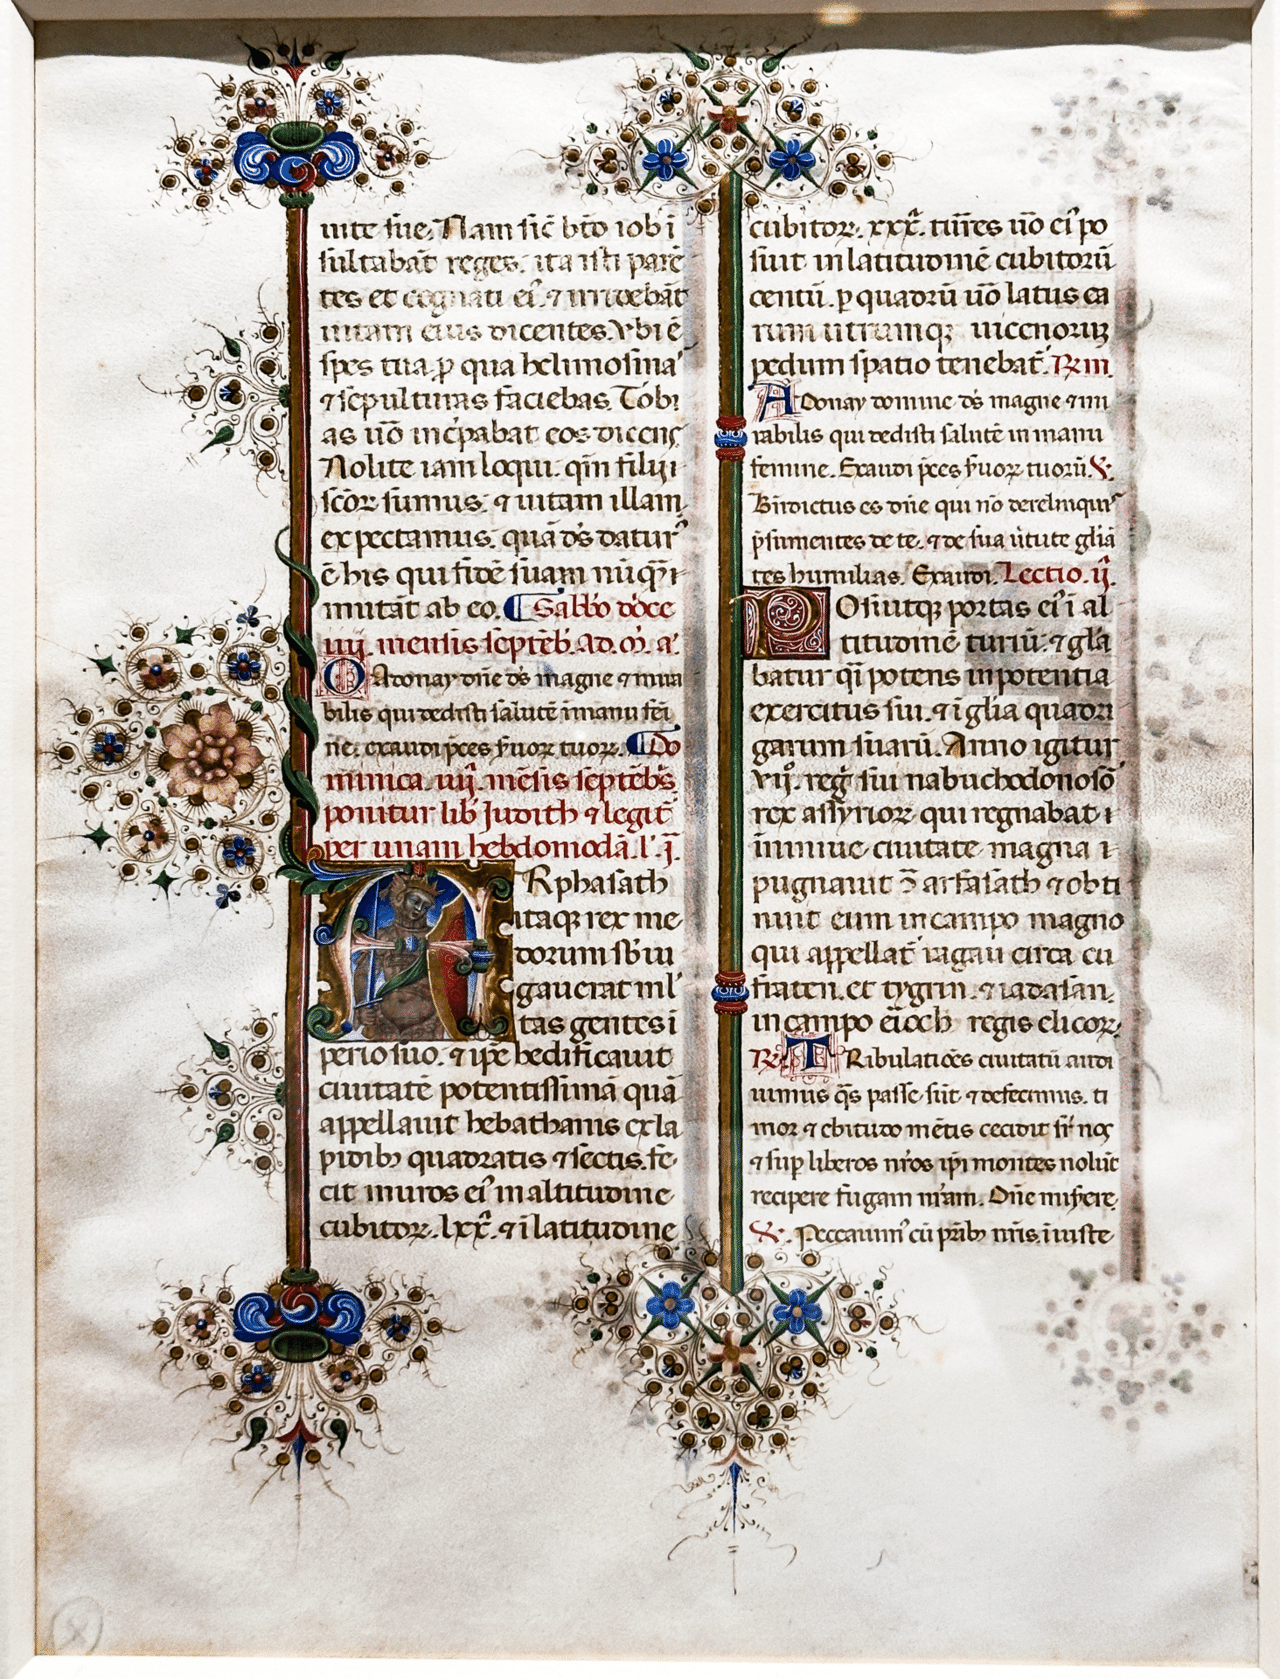 uite sue. Nam sic̄ bt̄o iob ī
sultabāt reges. ita isti parē
tes et cognati eiꝰ. ⁊ irridebāt
uitam eius dicentes. Vbi ē
spes tua ꝓ qua helimosinaˢ
⁊ sepulturas faciebas. Tobi
as ūo incͥpabat eos dicens
Nolite iam loqui. qm̄ filij
scōꝝ sumus. ⁊ uitam illam
expectamus. quā dˢ̄ daturꝰ
ē his qui fidē suam nūq̄ꝫ
mutāt ab eo. Sabb̄o d̄oce
iiij. mensis septēb̄. ad. m̄. aˣ.
O Adonay dn̄e dˢ̄ magne ⁊ mira
bilis qui dedisti salutē ī manu femī
ne. exaudi p̄ces s̓uoꝝ tuoꝝ. Do
minica. iiij. mēsis septēb̄s
ponitur lib̓ Judith ⁊ legit᷑
per unam hebdomodā. l'. j̄.
ARphasath
itaqꝫ rex me
dorum sb̓iu
gauerat ml̓
tas gentes ī
perio suo. ⁊ ip̄e hedificauit
ciuitatē potentissimā quā
appellauit hebathanis ex la
pidibꝫ quadratis ⁊ sectis. fe
cit muros eiꝰ in altitudine
cubitoꝝ. lxxͣ. ⁊ ī latitudine
cubitoꝝ. xxxͣ. turr̄es ūo eiꝰ po
suit in latitudinē cubitorū
centū. ꝑ quadrū ūo latus ea
rum utrumqꝫ uicenoruꝫ
pedum spatio tenebat᷑. R̄m.
Adonay domine dˢ̄ magne ⁊ mi
rabilis qui dedisti salutē in manu
femine. Exaudi p̄ces s̓uoꝝ tuorū. ℣.
Bn̄dictus es dn̄e qui nō derelinquiˢ
p̄sumentes de te. ⁊ de sua uͥtute gliā
tes humilias. Exaudi. Lectio. ij.
POsuitqꝫ portas eiꝰ ī al
titudinē turiū. ⁊ glͣa
batur qͣi potens in potentia
exercitus sui. ⁊ ī glͣia quadri
garum suarū. Anno igitur
xijº. reg̓ sui nabuchodonosō
rex assyrioꝝ qui regnabat ī
niniue ciuitate magna ī
pugnauit 9̄ arfasath ⁊ obti
nuit eum in campo magno
qui appellat᷑ ragau circa eu
fraten. et tygrin. ⁊ iadasan.
in campo eīoch regis elicoꝝ.
R̄. TRibulatiōes ciuitatū audi
uimus qˢ̄ passe sūt ⁊ defecimus. ti
mor ⁊ ebitudo mētis cecidit sr̄ nos
⁊ suꝑ liberos nr̄os ip̄i montes nolūt
recipere fugam nr̄am. Dn̄e miserere.
℣. Peccauimꝰ cū pr̄ibꝫ nr̄is. īiuste